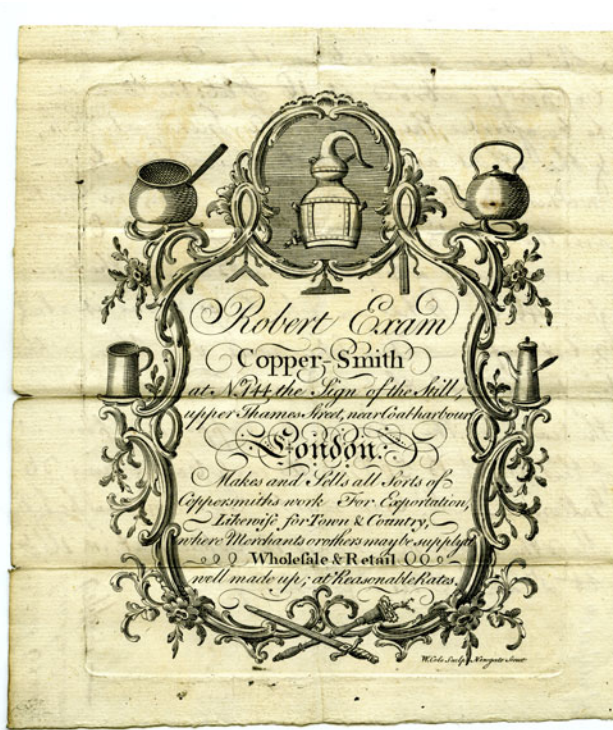 Robert Exam
Copper-Smith
at N.º 144 the Sign of the Still,
upper Thames Street, near Coalharbour
London.
Makes and Sells all Sorts of
Coppersmiths work For Exportation,
Likewiſe for Town & Country,
where Merchants or others may be supply'd
Wholeſale & Retail
well made up; at Reasonable Rates.
W. Cole Sculp. Newgate Street